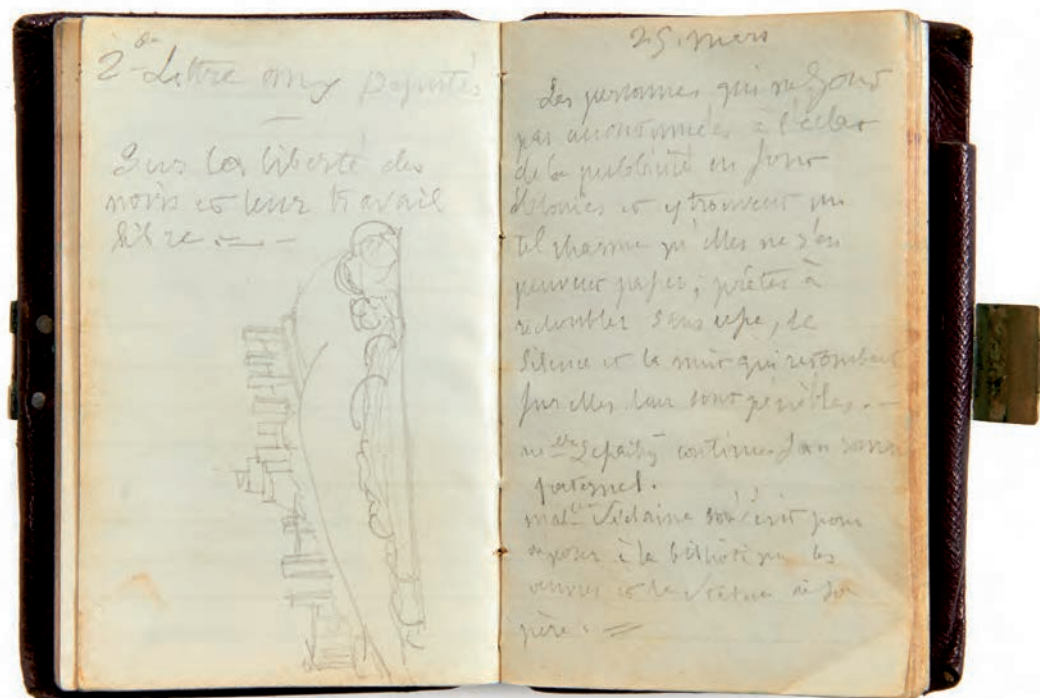 2de Lettre aux Députés
Sur la liberté des
noirs et leur travail
libre.
25. mars
Les personnes qui ne sont
pas accoutumées à l'éclat
de la publicité en sont
et y trouvent un
tel charme qu'elles ne s'en
peuvent passer, prêtes à
redoubler sans cesse, le
silence et la nuit qui retombent
sur elles leur sont pénibles.
continue son
paternel.
Sédaine pour
déposer à la bibliothèque les
œuvres et la statue de son
père.